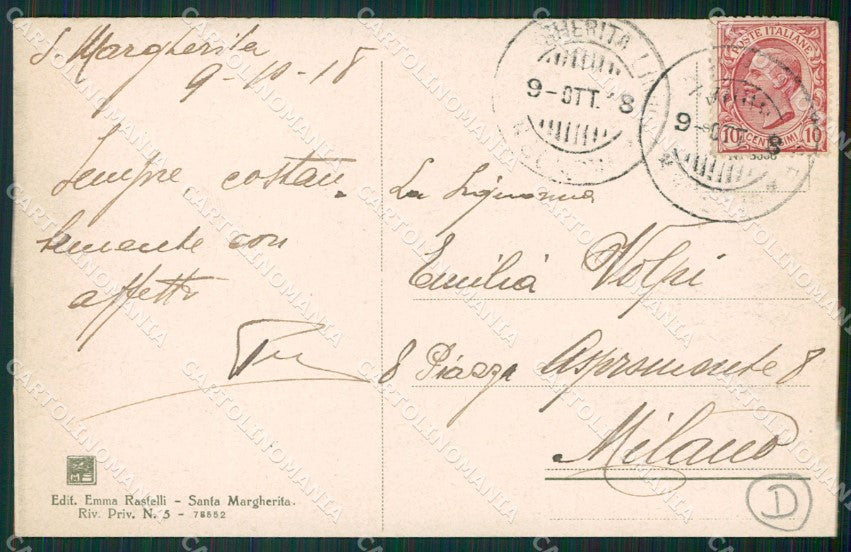 S Margherita
9-10-18
Sempre costan
temente con
affetto
La Signorina
Emilia Volpi
8 Piazza Aspromonte 8
Milano
D
GHERITA LI
9-OTT. 8
9-OTT. 8
POSTE ITALIANE
10 CENTESIMI 10
Edit. Emma Rastelli - Santa Margherita.
Riv. Priv. N. 5 - 76552
CARTOLINOMANIA